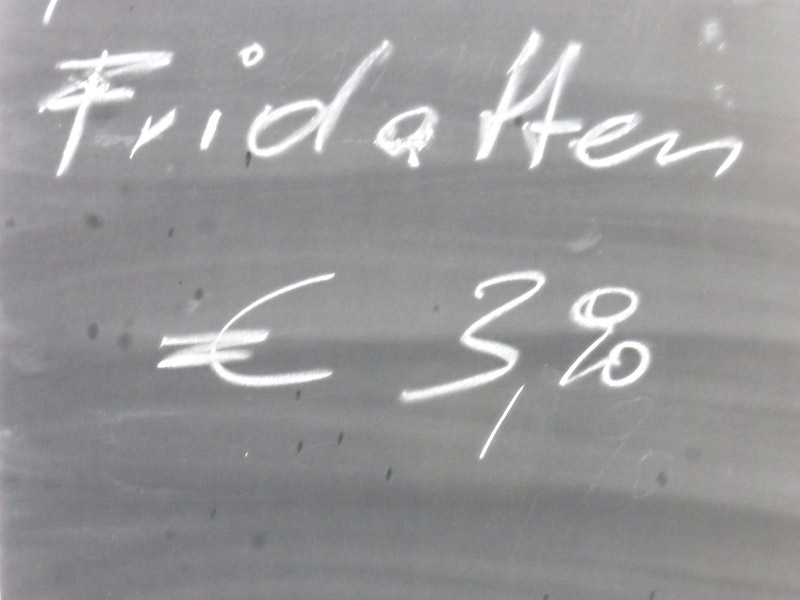 Fridatten
€ 3,90